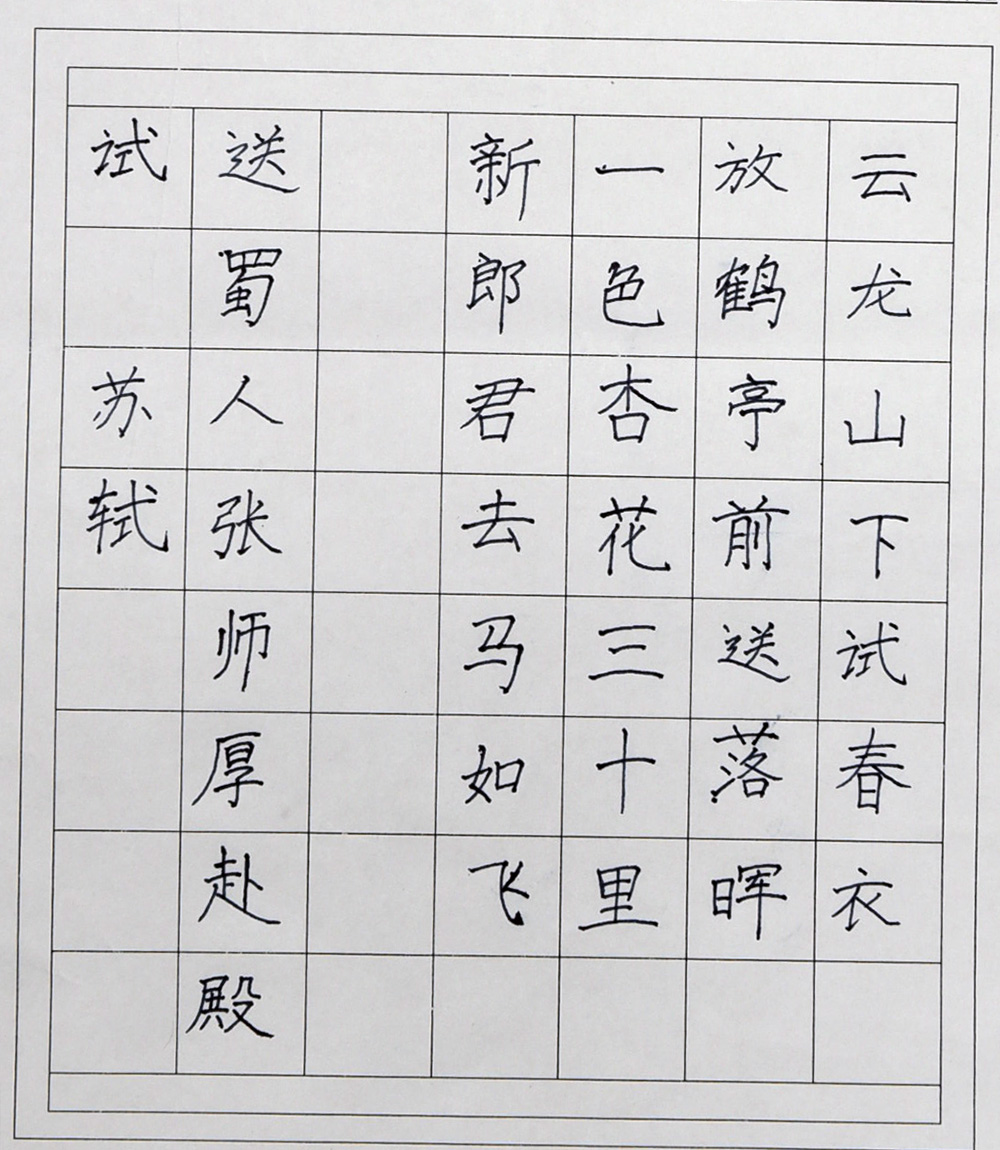 云龙山下试春衣
放鹤亭前送落晖
一色杏花三十里
新郎君去马如飞
送蜀人张师厚赴殿
试 苏轼